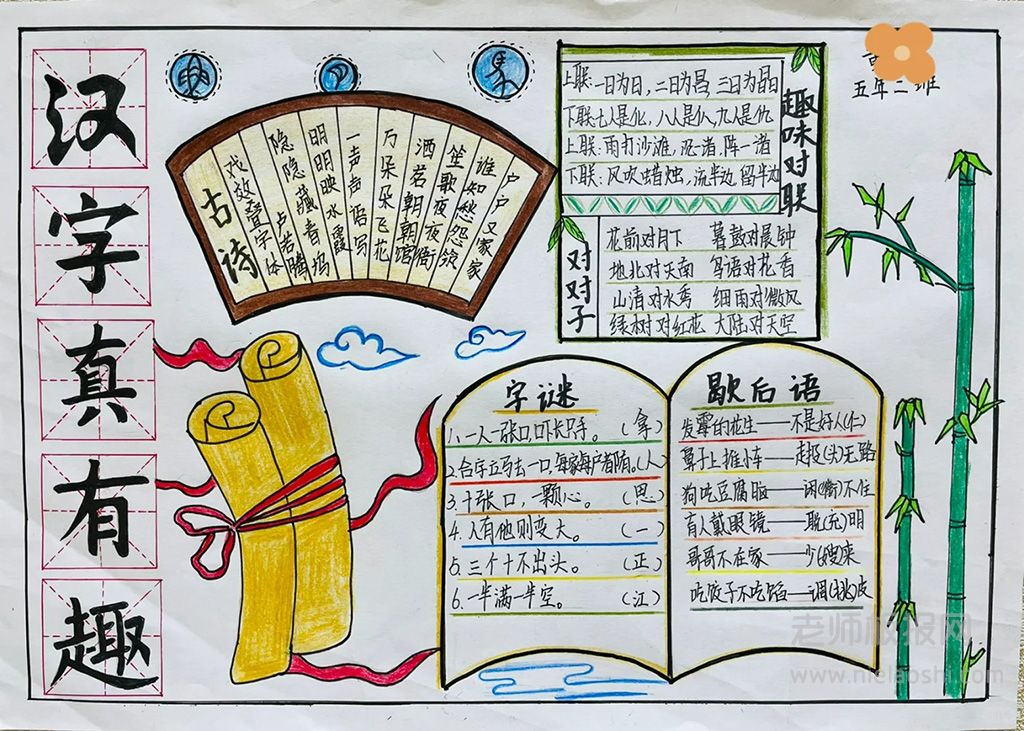 汉字真有趣
五年二班
古诗
戏效叠字体
卢若腾
隐隐藏春坞
明明映水霞
一声声语写
万朵朵飞花
酒若朝朝馆
笙歌夜夜衙
谁知愁怨欲
户户又家家
趣味对联
上联:一日为日,二日为昌,三日为晶
下联:七人是化,八人是仈,九人是仇
上联:雨打沙滩,沉一渚,阵一渚
下联:风吹蜡烛,流半边,留半边
对对子
花前对月下 暮鼓对晨钟
地北对天南 鸟语对花香
山清对水秀 细雨对微风
绿树对红花 大陆对天空
字谜
1、一人一张口,口下长只手。(拿)
3.十张口,一颗心。(思)
4.人有他则变大。(一)
5.三个十不出头。(正)
6.一半满一半空。(江)
歇后语
发霉的花生——不是好人(仁)
鼻子上推小车——走投(头)无路
狗吃豆腐脑——闲(衔)不住
盲人戴眼镜——聪(充)明
哥哥不在家——少(嫂)来
吃饺子不吃馅——调(挑)皮
老师板报网
www.nielaoshi.com